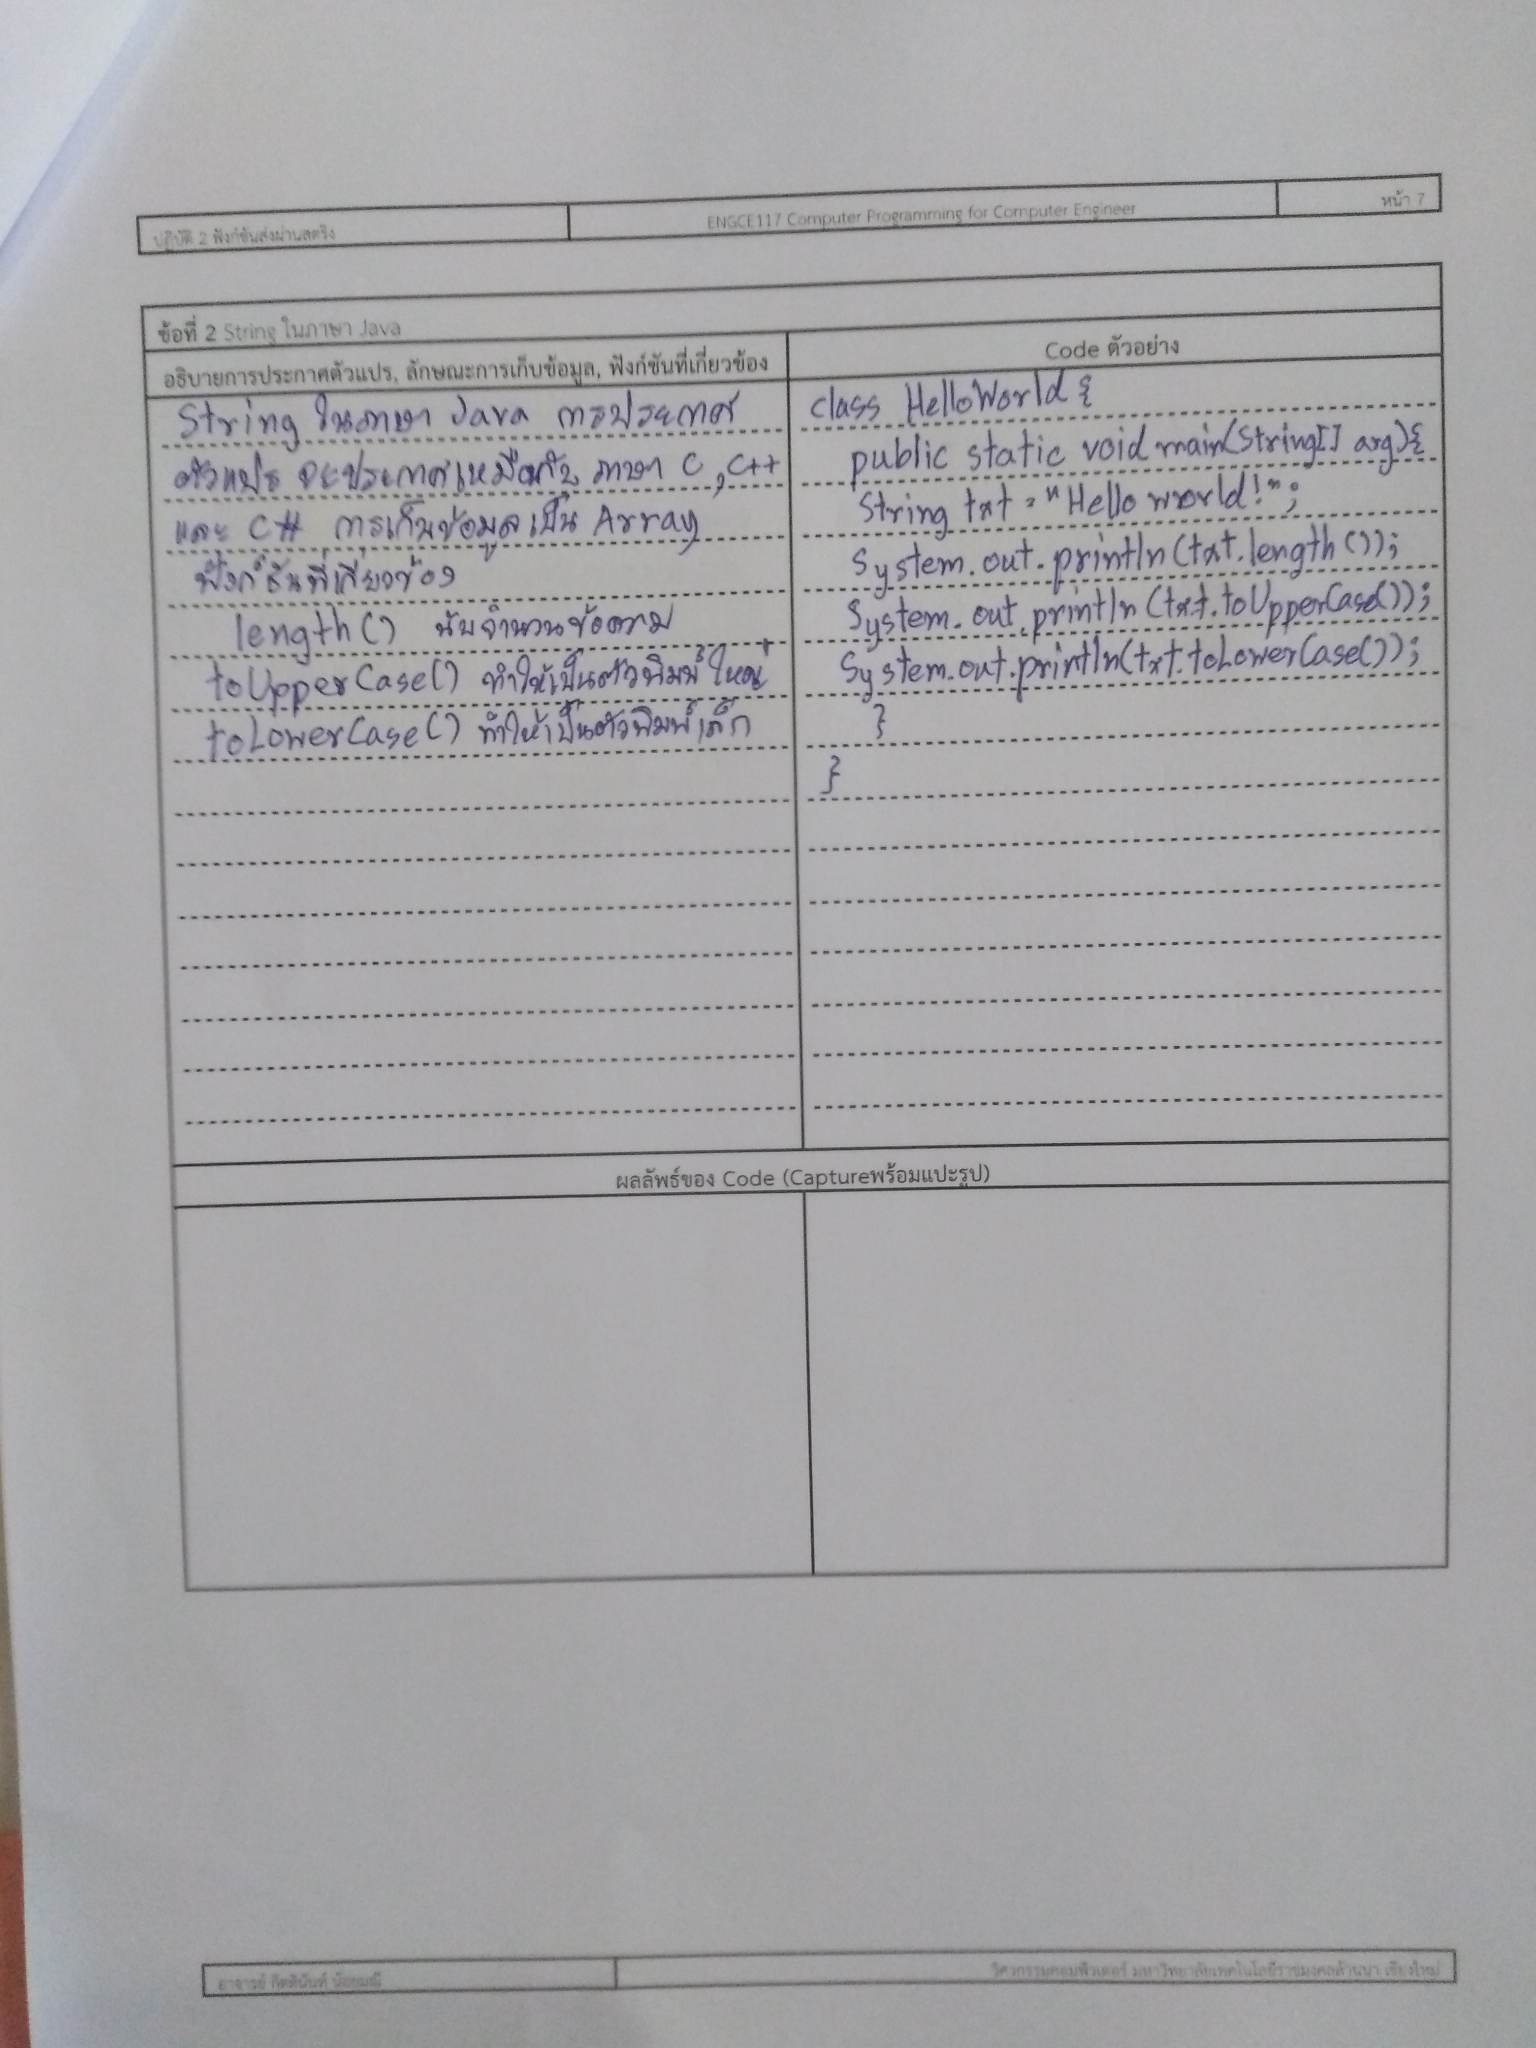 ปฏิบัติ 2 ฟังก์ชันส่งผ่านสตริง
ENGCE117 Computer Programming for Computer Engineer
หน้า 7
ข้อที่ 2 String ในภาษา Java
อธิบายการประกาศตัวแปร, ลักษณะการเก็บข้อมูล, ฟังก์ชันที่เกี่ยวข้อง
String ในภาษา Java การประกาศ
ตัวแปร จะประกาศเหมือนกับ ภาษา C, C++
และ C# การเก็บข้อมูลเป็น Array
ฟังก์ชันที่เกี่ยวข้อง
length() นับจำนวนข้อความ
toUpperCase() ทำให้เป็นตัวพิมพ์ใหญ่
toLowerCase() ทำให้เป็นตัวพิมพ์เล็ก
Code ตัวอย่าง
class HelloWorld {
public static void main(String[] arg){
String txt = "Hello world!";
System.out.println(txt.length());
System.out.println(txt.toUpperCase());
System.out.println(txt.toLowerCase());
}
}
ผลลัพธ์ของ Code (Captureพร้อมแปะรูป)
อาจารย์ กิตตินันท์ น้อยมณี
วิศวกรรมคอมพิวเตอร์ มหาวิทยาลัยเทคโนโลยีราชมงคลล้านนา เชียงใหม่